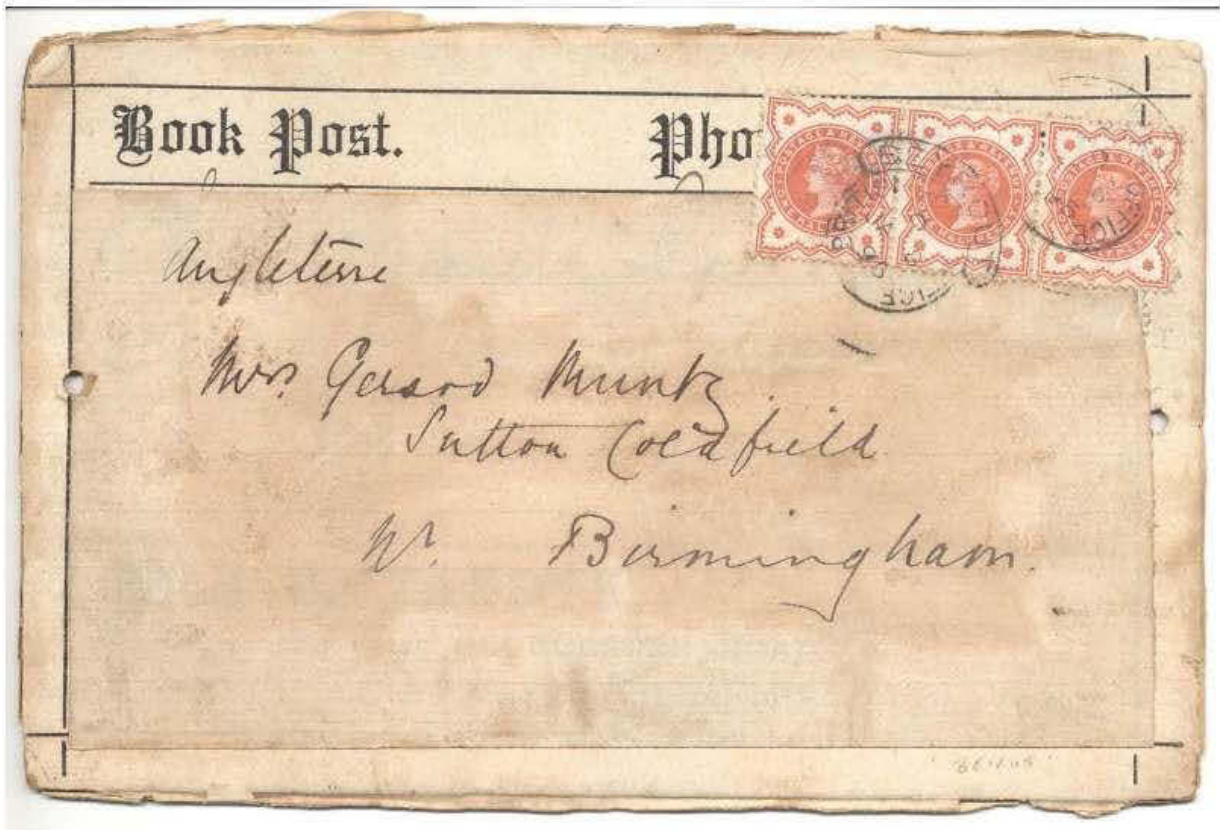 Book Post. Pho
Angleterre
Mrs. Gerard Muntz.
Sutton Coldfield
Nr. Birmingham.